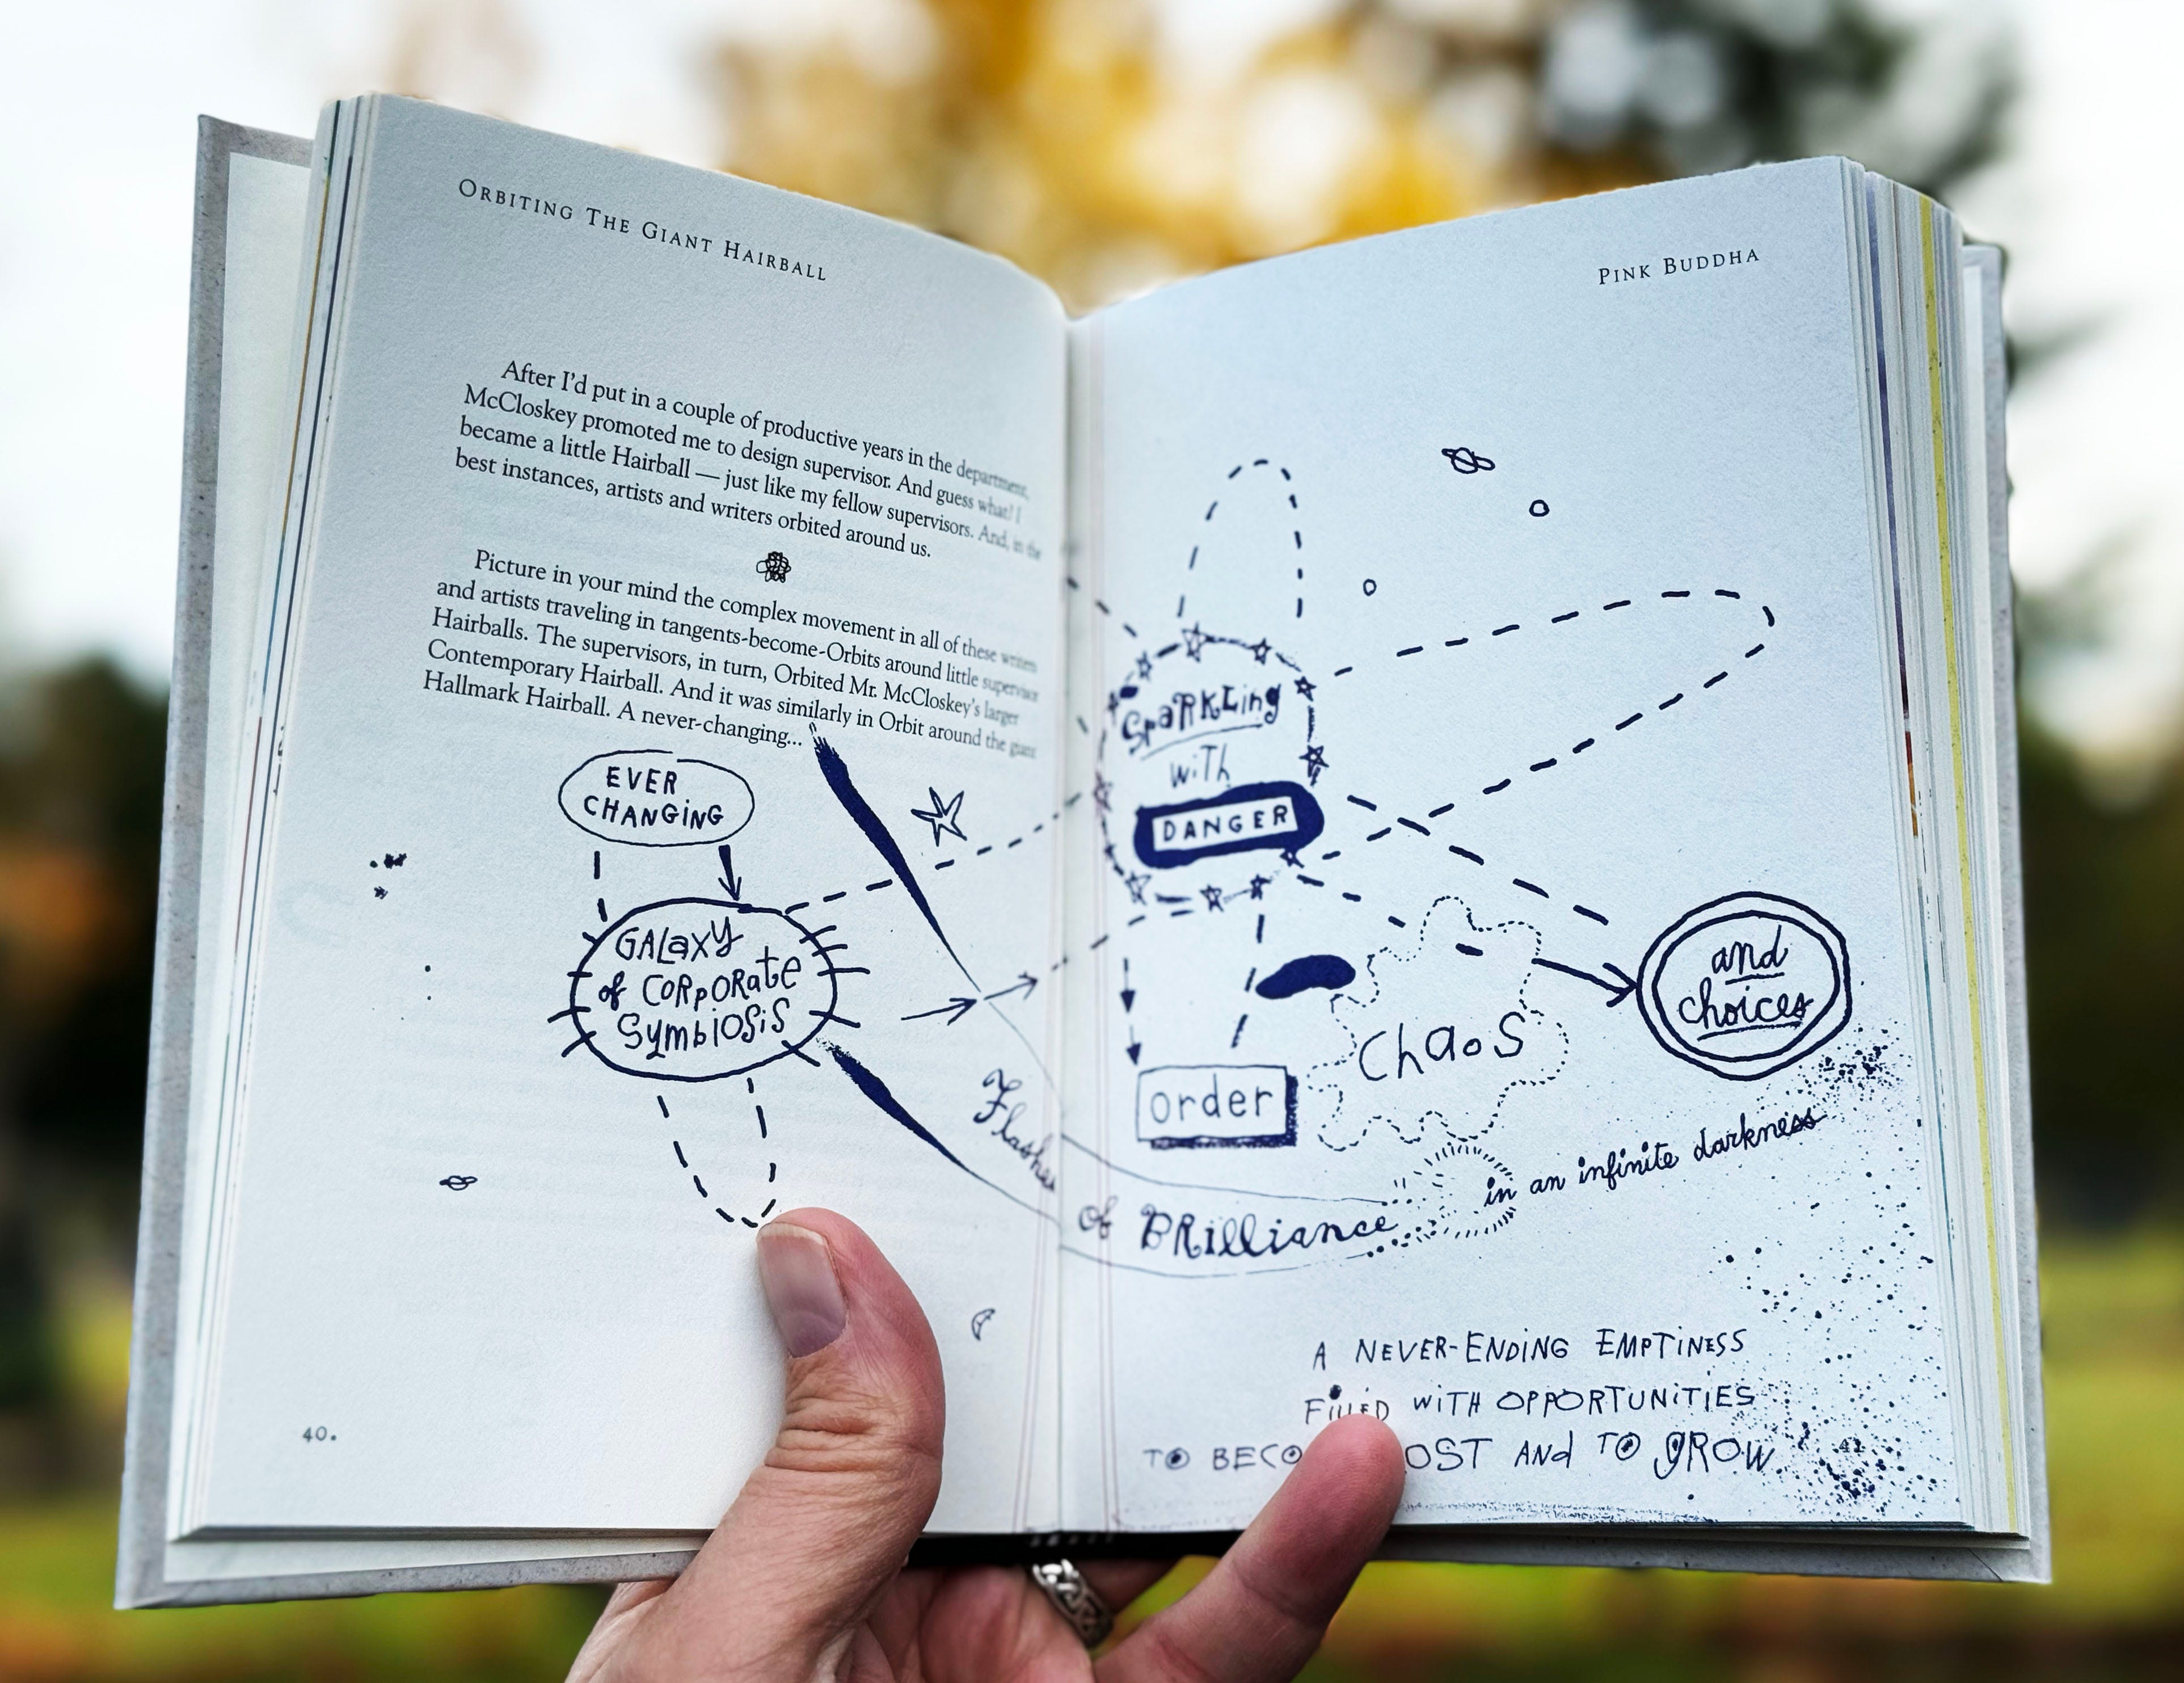 ORBITING THE GIANT HAIRBALL
After I'd put in a couple of productive years in the department,
McCloskey promoted me to design supervisor. And guess what? I
became a little Hairball — just like my fellow supervisors. And, in the
best instances, artists and writers orbited around us.
Picture in your mind the complex movement in all of these writers
and artists traveling in tangents-become-Orbits around little supervisor
Hairballs. The supervisors, in turn, Orbited Mr. McCloskey's larger
Contemporary Hairball. And it was similarly in Orbit around the giant
Hallmark Hairball. A never-changing...
EVER
CHANGiNG
GALaxy
of CORpORate
SymbiOSiS
40.
PINK BUDDHA
SpaRKLing
wiTh
DANGER
order
ChaoS
and
choices
Flashes
of BRilliance
in an infinite darkness
A NEVER-ENDiNG EMPTiNESS
FillED WiTH OPPORTUNiTiES
TO BECO OST ANd TO GROW
41